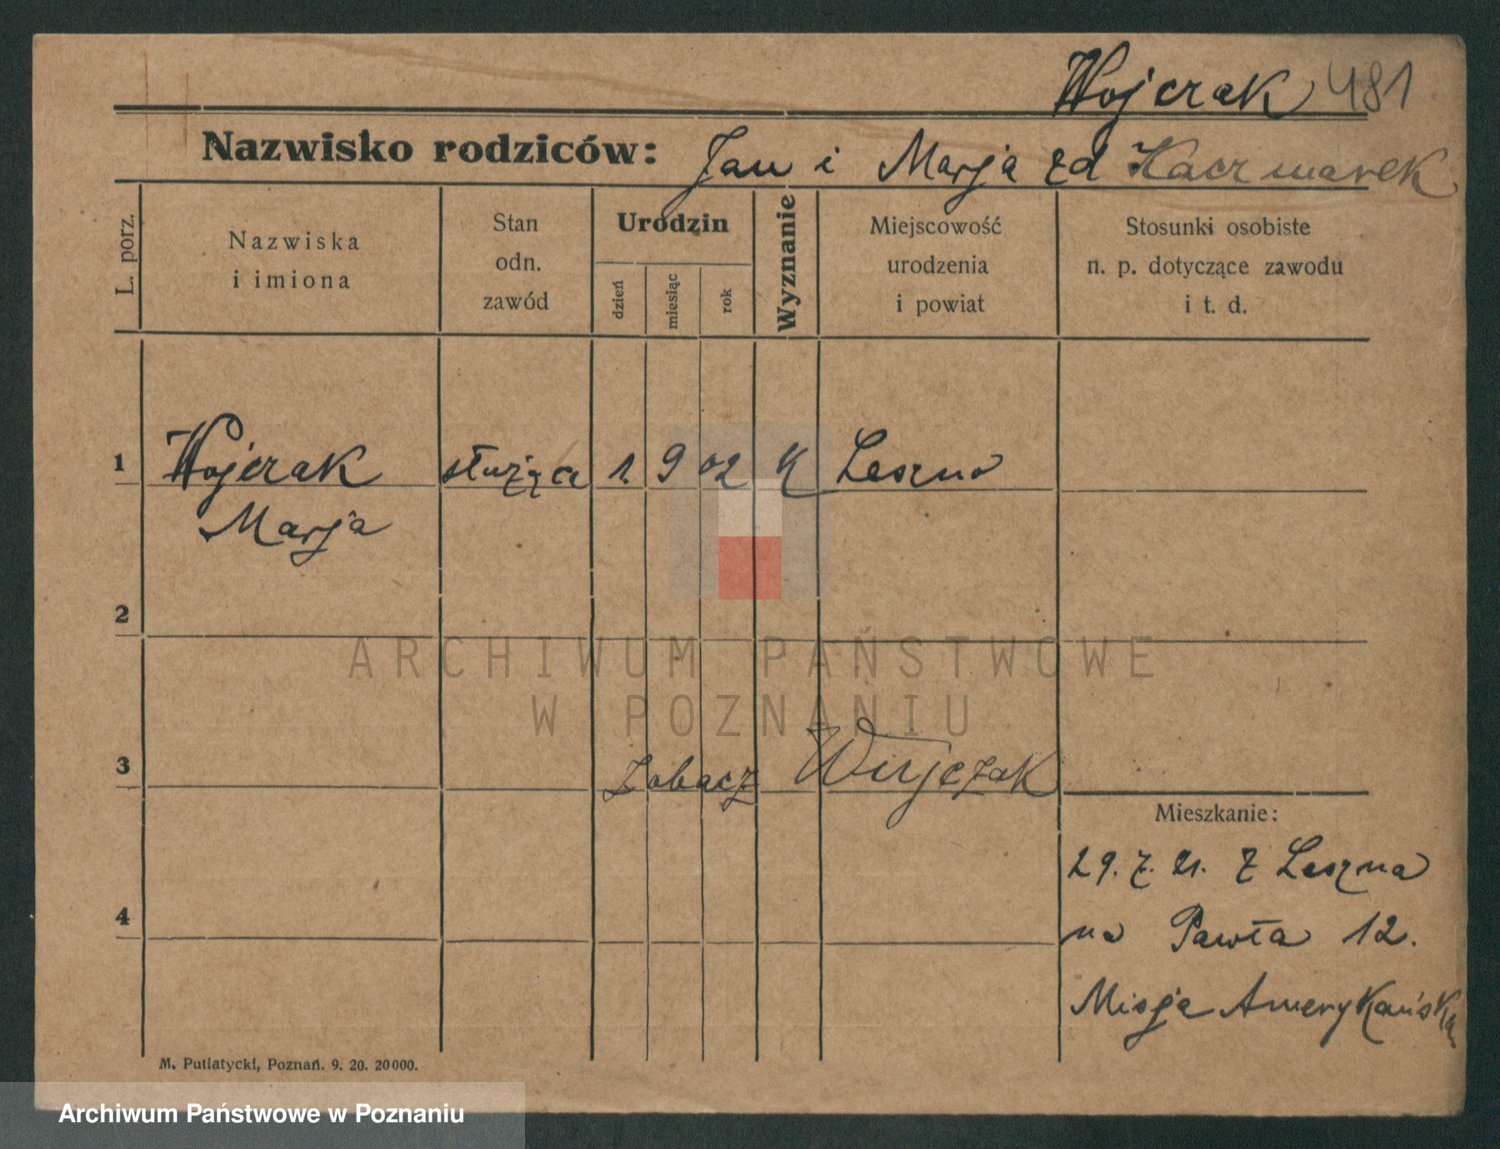 Wojczak 481
Nazwisko rodziców: Jan i Marja zd Kaczmarek
L. porz.
Nazwiska
i imiona
Stan
odn.
zawód
Urodzin
dzień
miesiąc
rok
Wyznanie
Miejscowość
urodzenia
i powiat
Stosunki osobiste
n. p. dotyczące zawodu
i t. d.
1 Wojczak służąca 1. 9 02 K Leszno
Marja
2
ARCHIWUM PAŃSTWOWE
W POZNANIU
3 Zobacz Wujczak
Mieszkanie:
29. 7. 21. z Leszna
4 na Pawła 12.
Misja Amerykańska
M. Putiatycki, Poznań. 9. 20. 20000.
Archiwum Państwowe w Poznaniu